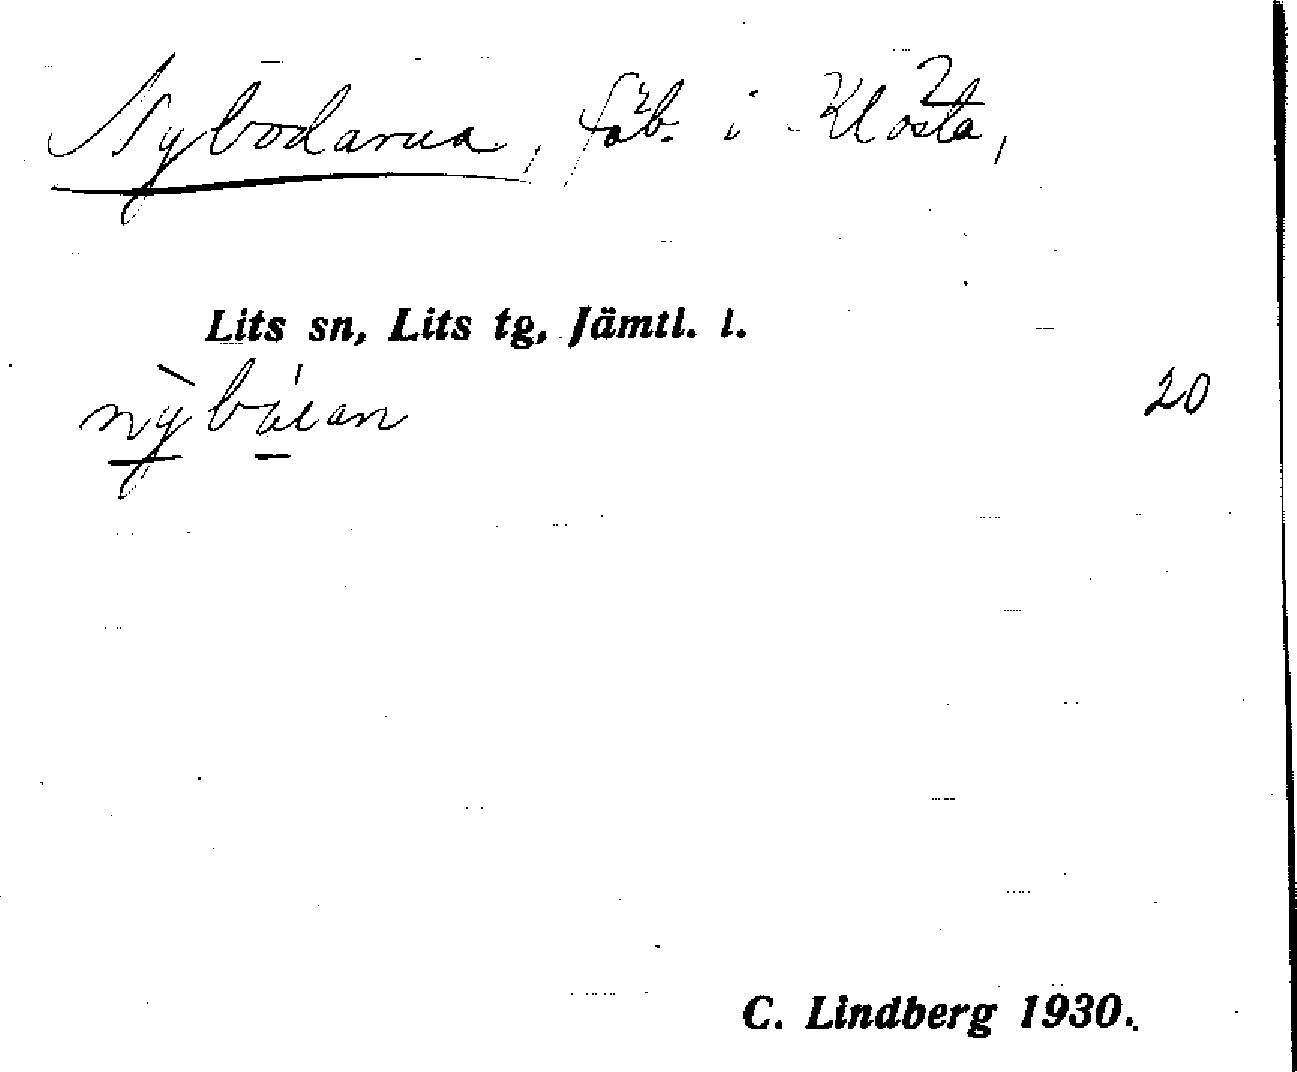 Nybodarna, fäb. i Klösta,
Lits sn, Lits tg, Jämtl. l.
20
C. Lindberg 1930.